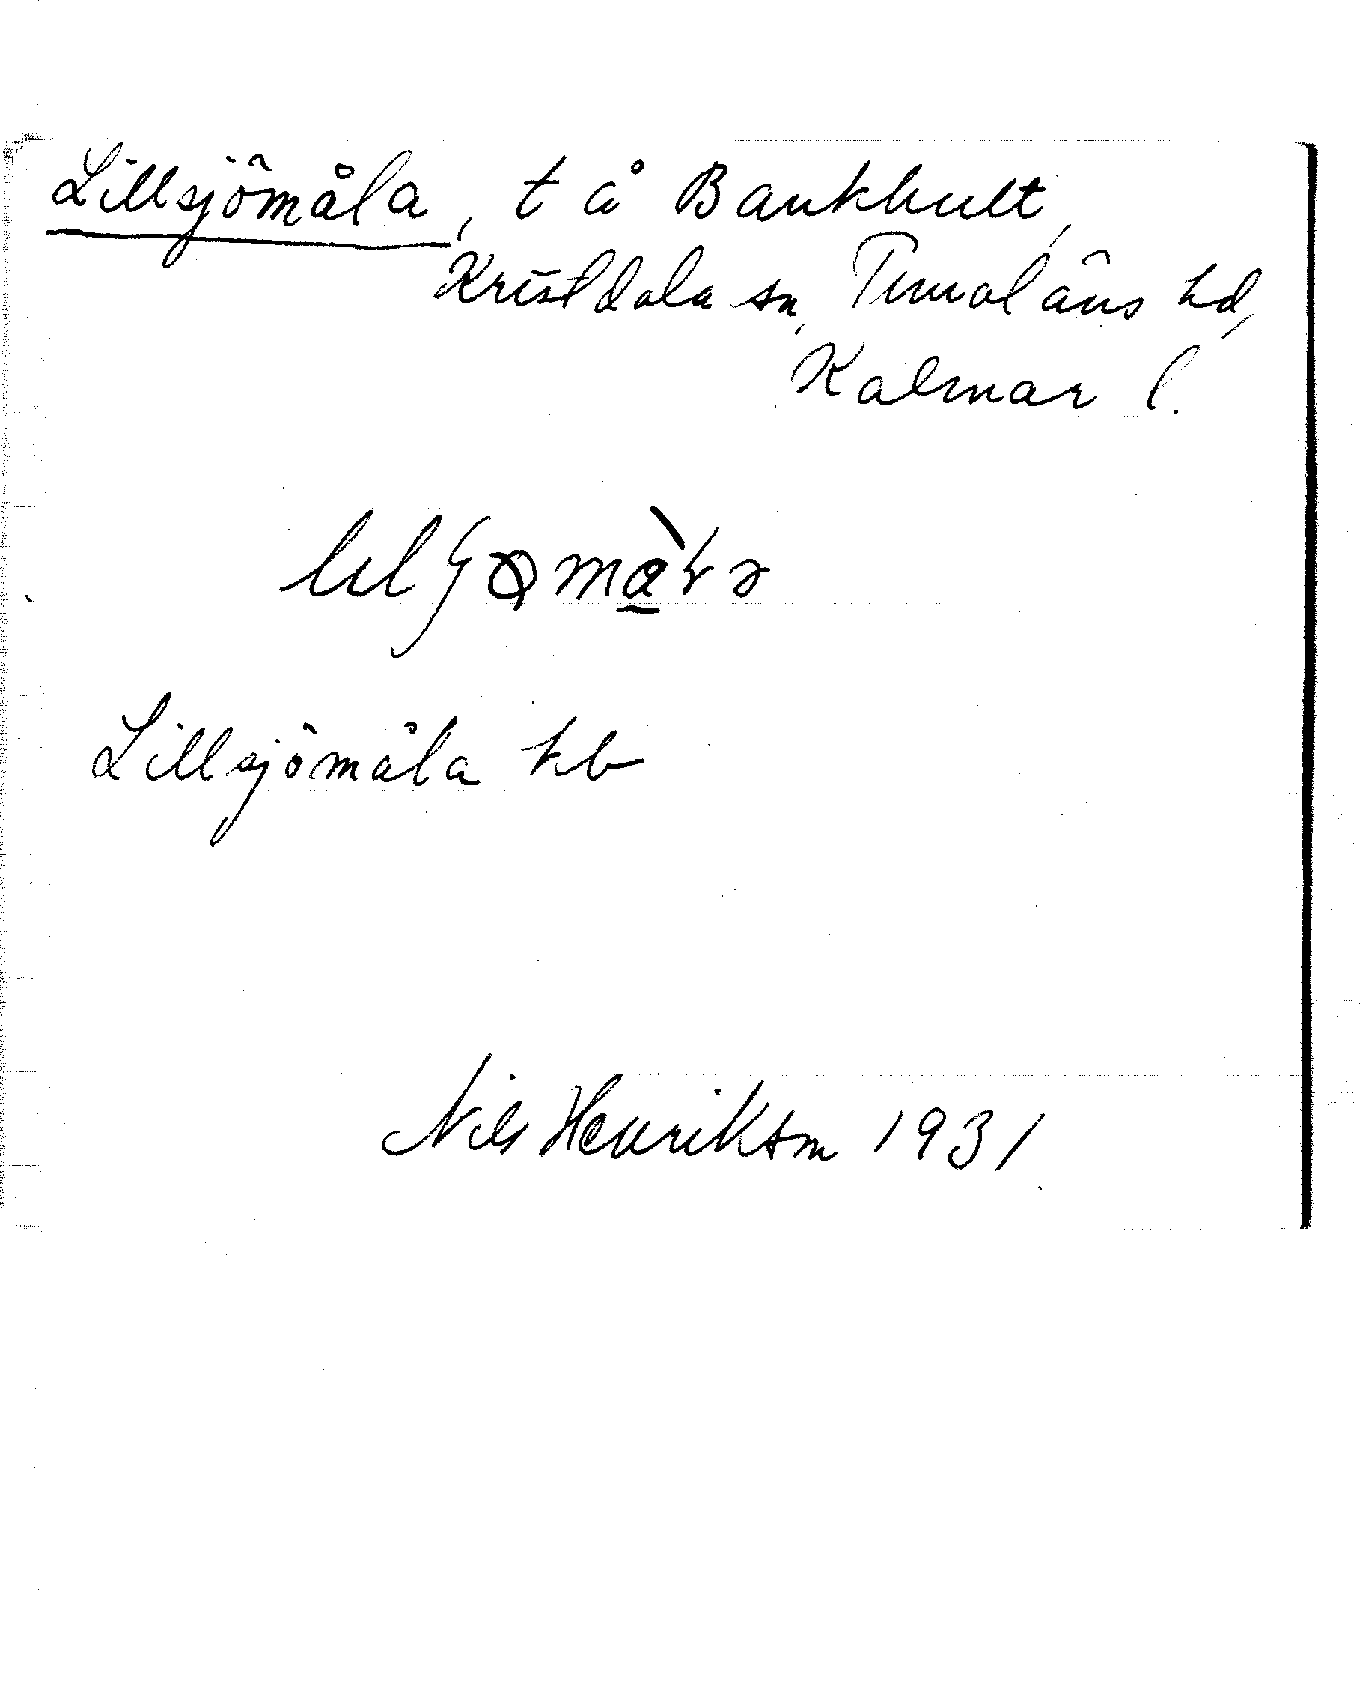 Lillsjömåla, t å Bankhult,
Kristdala sn, Tunaläns hd,
Kalmar l.
Lillsjömåla kb
Nils Henrikson 1931